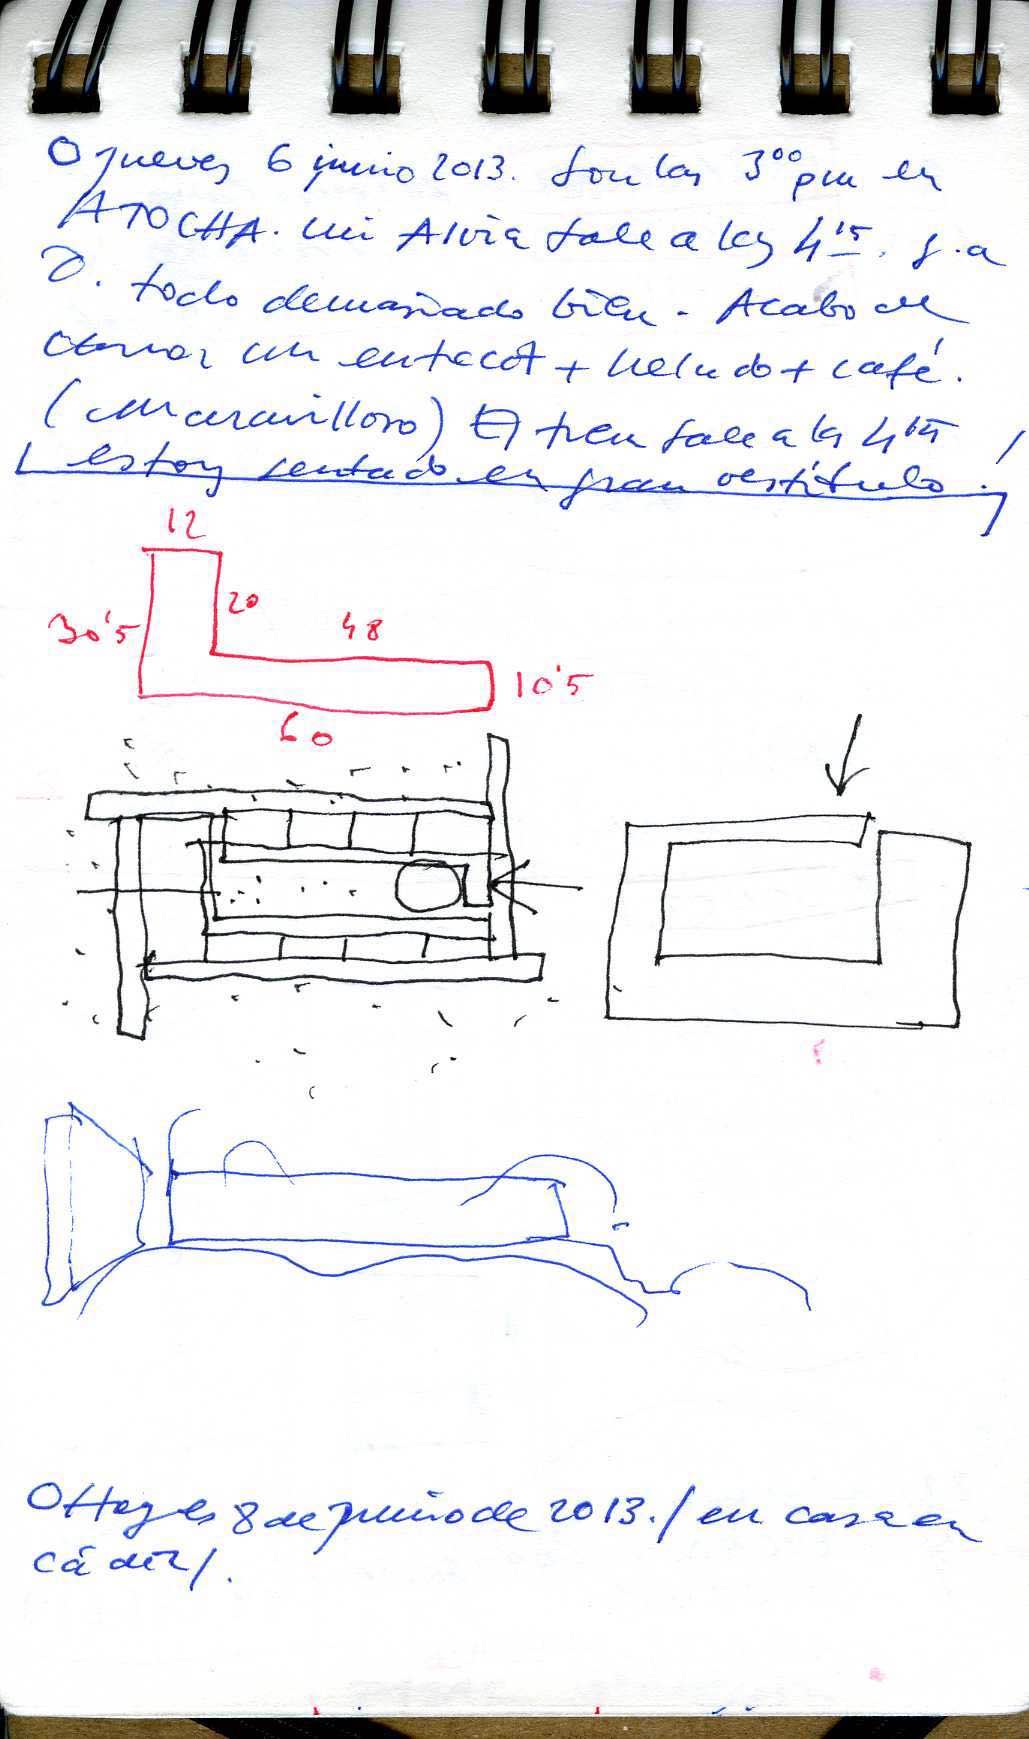 O jueves 6 junio 2013. Son las 3ºº pm en
ATOCHA. mi Alvia sale a las 4 15. g. a
D. todo demasiado bien. Acabo de
comer un entrecot + helado + café.
(maravilloso) El tren sale a las 4 15
estoy sentado en gran vestíbulo.
12
20
30'5
48
10'5
60
O Hoy es 8 de junio de 2013. / en casa en
cádiz/.